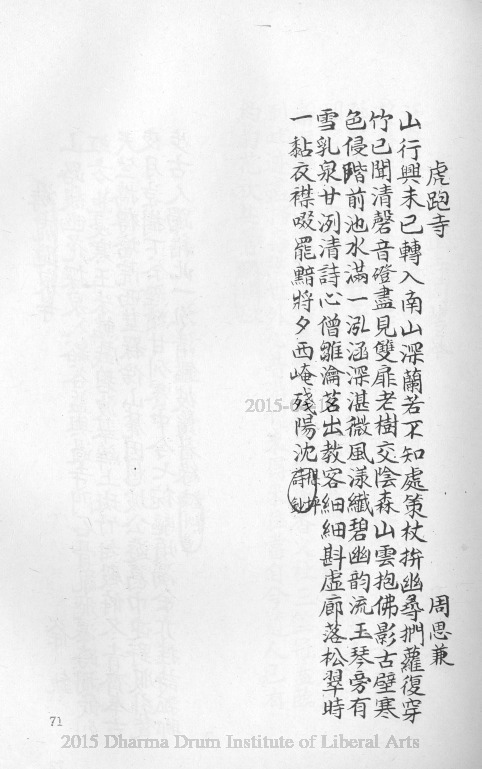 虎跑寺
周思兼
山行興未已轉入南山深蘭若不知處策杖拚幽尋捫蘿復穿
竹已聞清磬音磴盡見雙扉老樹交陰森山雲抱佛影古壁寒
色侵階前池水滿一泓涵深湛微風漾纖碧幽韵流玉琴旁有
雪乳泉甘洌清詩心僧雛瀹茗出教客細細斟虛廊落松翠時
一黏衣襟啜罷黯將夕西崦殘陽沈
詩鈔
71
2015 Dharma Drum Institute of Liberal Arts